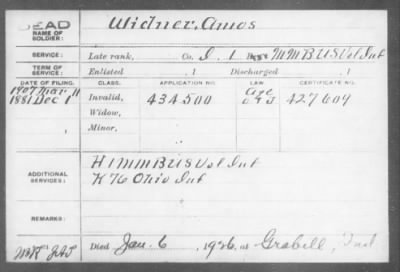 DEAD
NAME OF SOLDIER: Widner, Amos
SERVICE: Late rank, Co. I, 1 Reg't M M B U S Vol Inf
TERM OF SERVICE: Enlisted , 1 Discharged , 1
DATE OF FILING. CLASS. APPLICATION NO. LAW. CERTIFICATE NO.
1907 Mar 11 age
1881 Dec 1 Invalid, 434500 427609
Widow,
Minor,
ADDITIONAL SERVICES: H 1 M M B U S Vol Inf
K 76 Ohio Inf
REMARKS:
Died Jan. 6, 1926, at Grabill, Ind